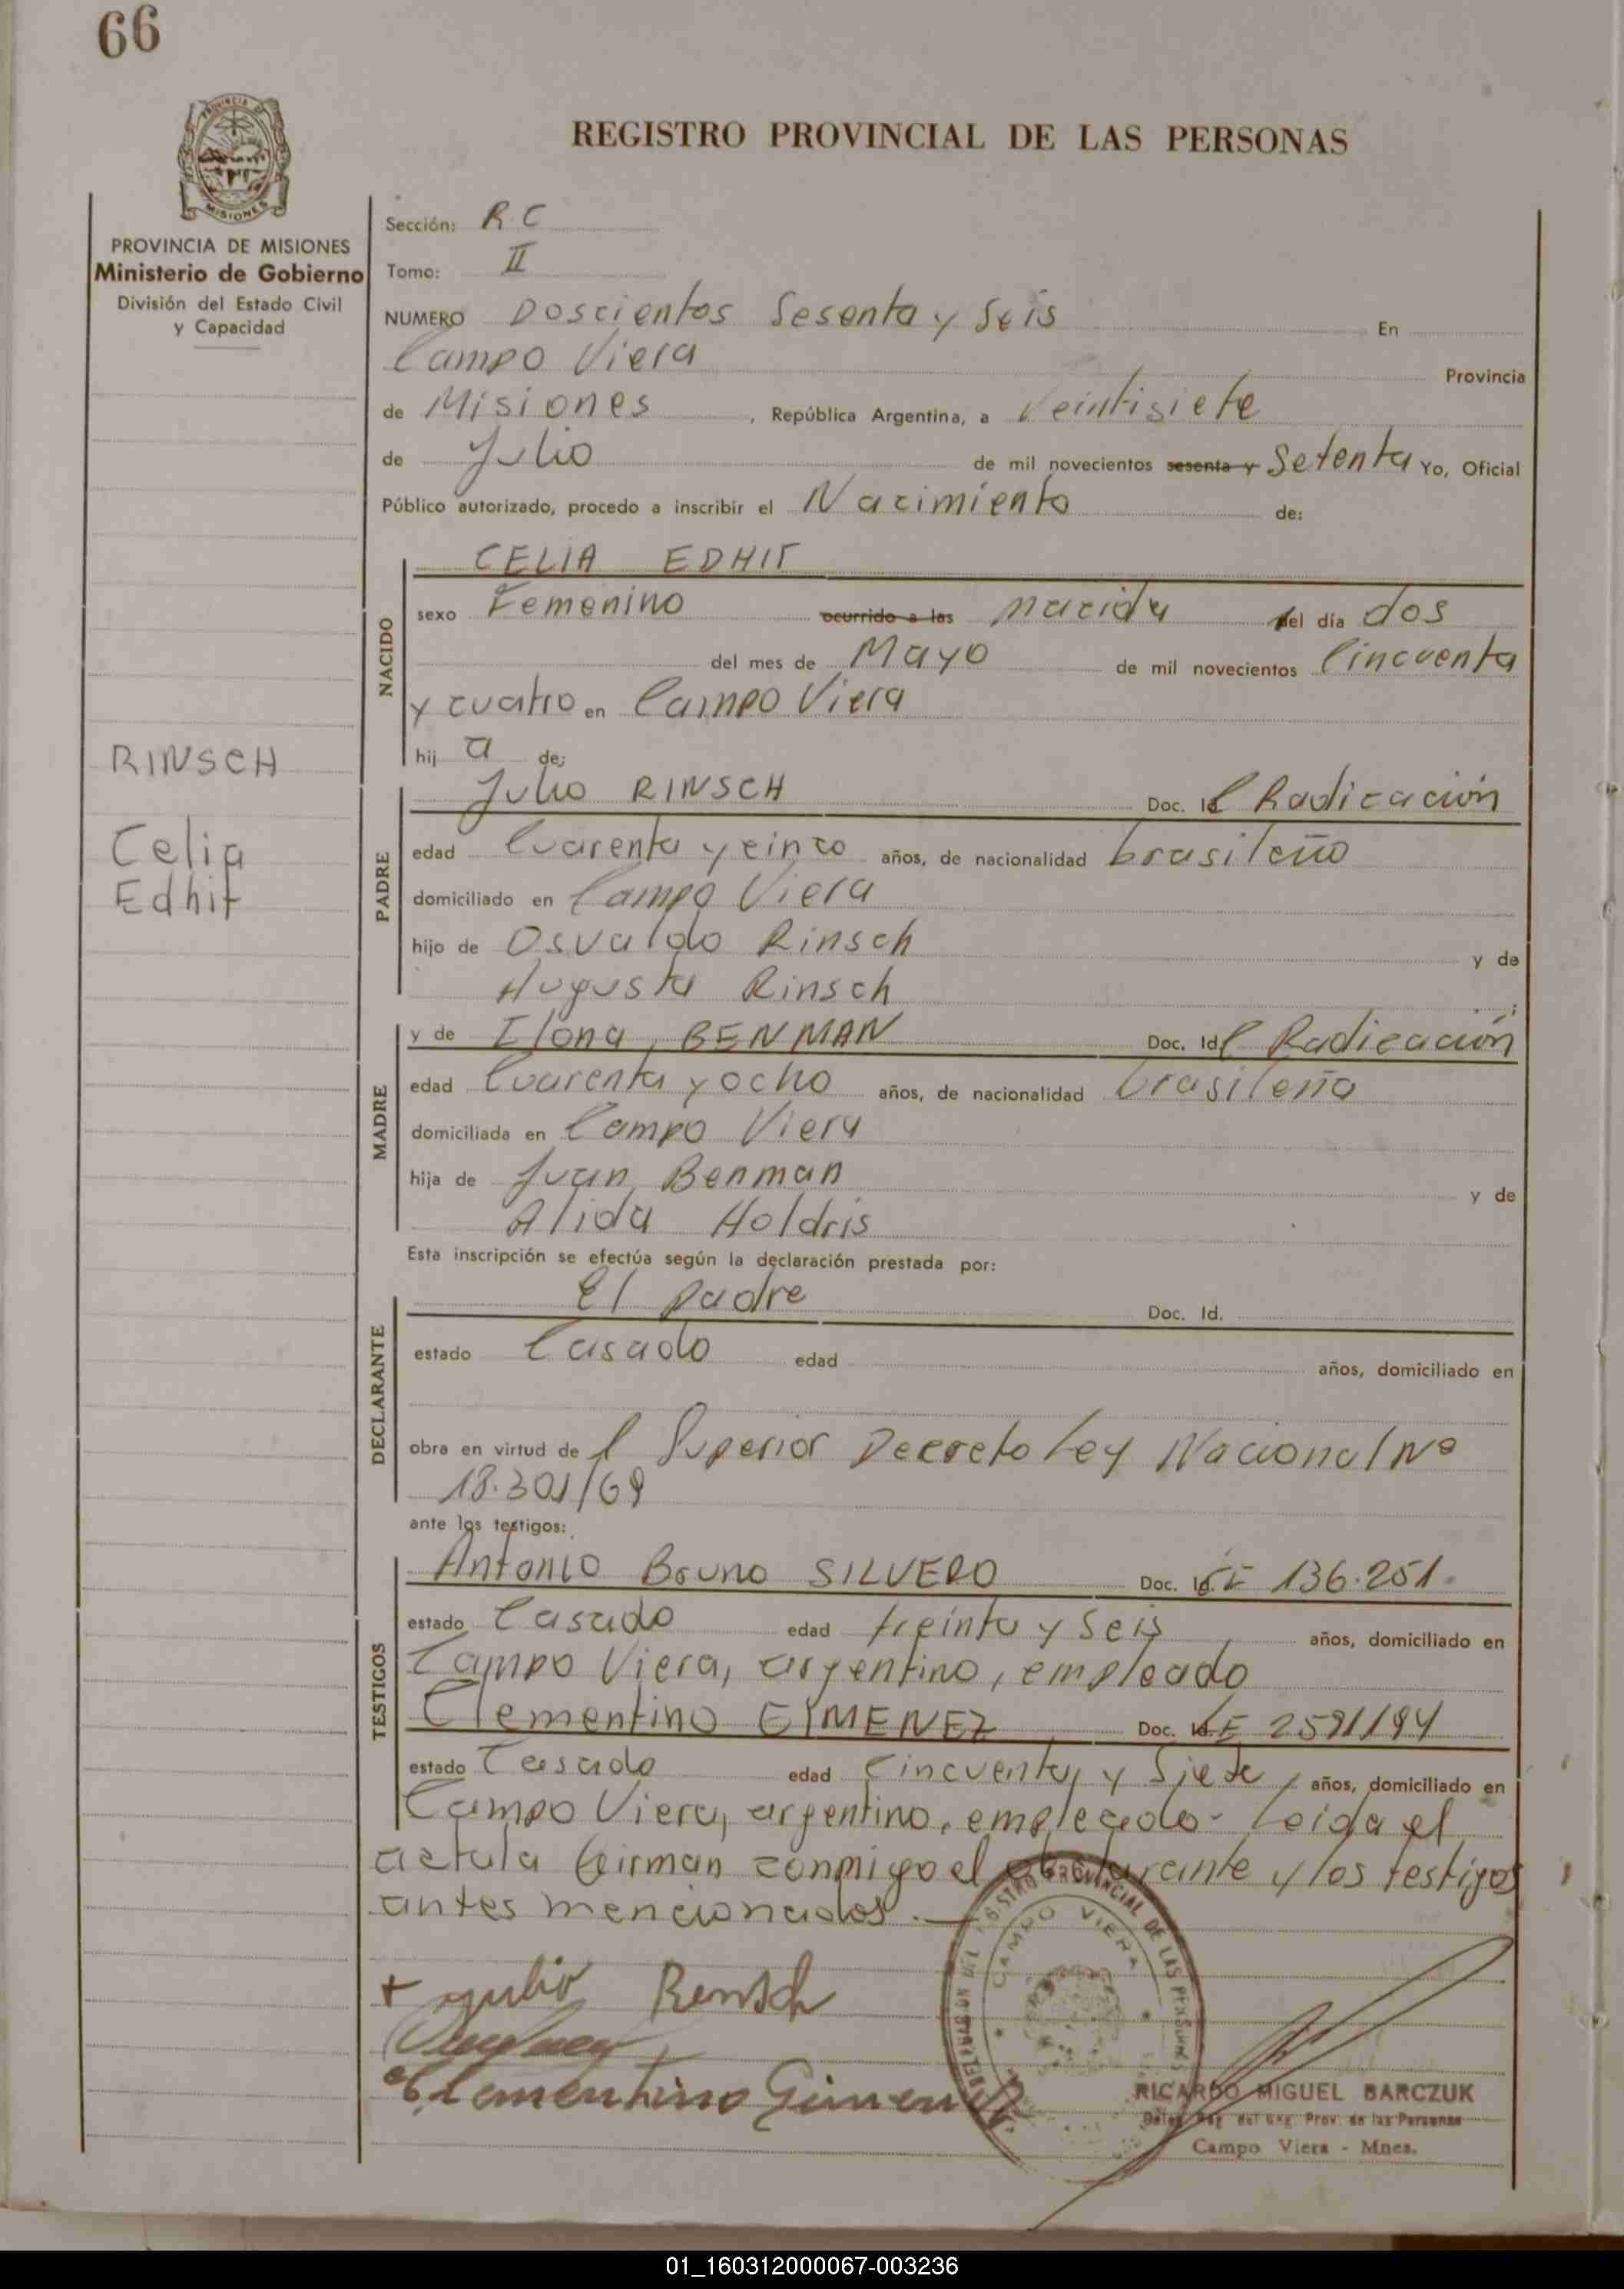 66
PROVINCIA DE
MISIONES
REGISTRO PROVINCIAL DE LAS PERSONAS
PROVINCIA DE MISIONES
Ministerio de Gobierno
División del Estado Civil
y Capacidad
RINSCH
Celia
Edhit
Sección: R.C
Tomo: II
NUMERO Doscientos Sesenta y Seis En
Campo Viera Provincia
de Misiones, República Argentina, a Veintisiete
de Julio de mil novecientos sesenta y Setenta Yo, Oficial
Público autorizado, procedo a inscribir el Nacimiento de:
NACIDO
CELIA EDHIT
sexo Femenino ocurrido a las nacida el día dos
del mes de Mayo de mil novecientos Cincuenta
y cuatro en Campo Viera
hij a de:
PADRE
Julio RINSCH Doc. Id. C Radicación
edad Cuarenta y cinco años, de nacionalidad brasileño
domiciliado en Campo Viera
hijo de Osvaldo Rinsch y de
Augusta Rinsch ;
MADRE
y de Ilona, BENMAN Doc. Id. C Radicación
edad Cuarenta y ocho años, de nacionalidad brasileña
domiciliada en Campo Viera
hija de Juan Benman y de
Alida Holdris
Esta inscripción se efectúa según la declaración prestada por:
DECLARANTE
El padre Doc. Id.
estado Casado edad años, domiciliado en
obra en virtud de l Superior Decreto Ley Nacional Nº
18.301/69
ante los testigos:
TESTIGOS
Antonio Bruno SILVERO Doc. Id. CI 136.251.
estado Casado edad treinta y seis años, domiciliado en
Campo Viera, argentino, empleado
Clementino GIMENEZ Doc. Id. LE 2591194
estado Casado edad Cincuenta y Siete, años, domiciliado en
Campo Viera, argentino, empleado - Leida el
acta la firman conmigo el declarante y los testigos
antes mencionados.—
+ Julio Rensch
Clementino Gimenez
DELEGACION DEL REGISTRO PROVINCIAL DE LAS PERSONAS
CAMPO VIERA
RICARDO MIGUEL BARCZUK
Deleg. Reg. del Reg. Prov. de las Personas
Campo Viera - Mnes.
01_160312000067-003236